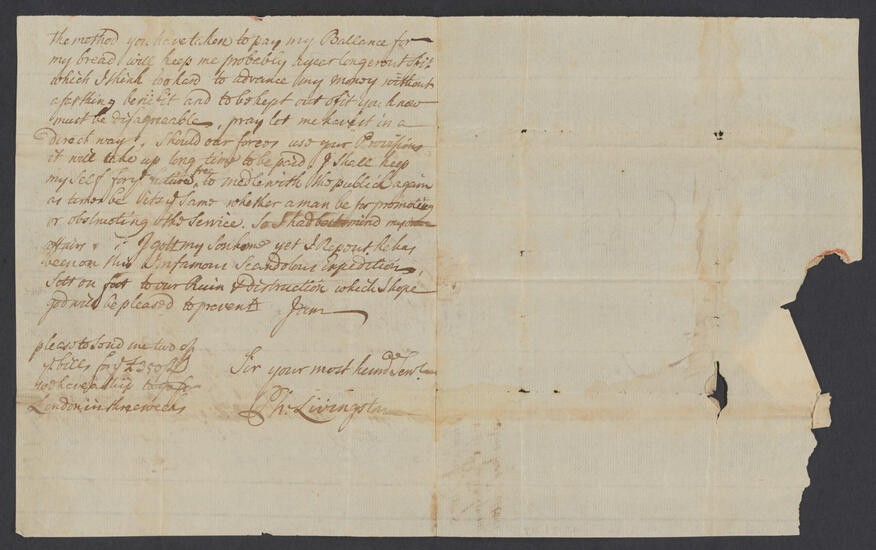 The method you have taken to pay my Ballance for
my bread will keep me probably a year longer out of it
which I think too hard to advance any money without
a farthing benefit and to be kept out of it you know
must be disagreable, pray let me have it in a
direct way, Should our forces use your Provisions
it will take up long time to be paid. I shall keep
my self for ye future free to medle with the publick again
as times be its ye same whether a man be for promoting
or obstructing the Service. So I had mind my
affairs I gott my Son home yet I Repent he has
been on this Infamous Scandolous Expedition,
Sett on foot to our Ruin & distruction which I hope
god will be pleased to prevent I am
please to send me two of
ye bills for ye £350
Sir your most humble Serv
we have a ship to
London in three weeks
Ph. Livingston